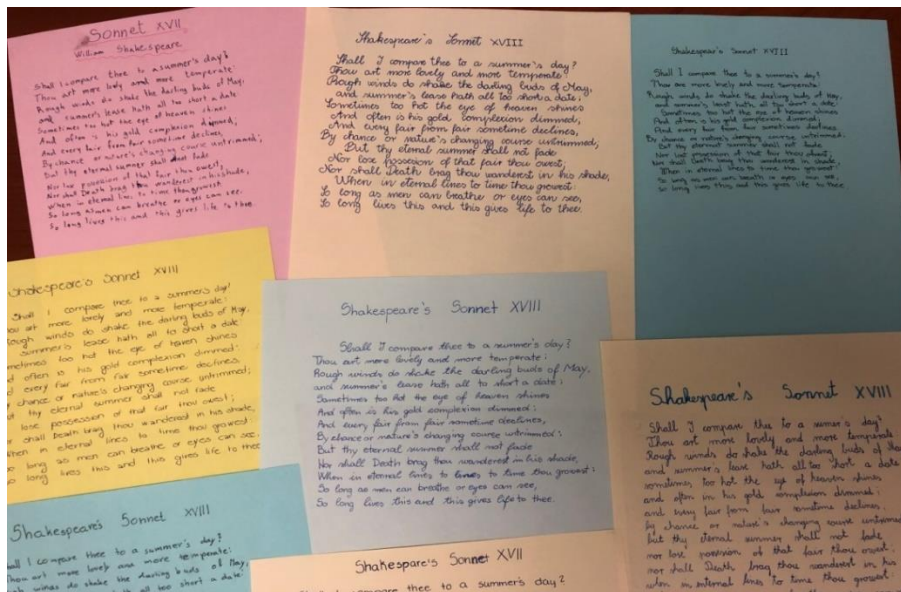 Sonnet XVII
William Shakespeare
Shall I compare thee to a summer's day?
Thou art more lovely and more temperate:
Rough winds do shake the darling buds of May,
and summer's lease hath all too short a date:
Sometimes too hot the eye of heaven shines
And often is his gold complexion dimmed,
And every fair from fair sometime declines,
By chance or nature's changing course untrimmed;
But thy eternal summer shall not fade
Nor lose possesion of that fair thou owest,
Nor shall Death brag thou wanderest in his shade,
When in eternal lines to time thou growest
So long as men can breathe or eyes can see.
So long lives this and this gives life to thee.
Shakespeare's Sonnet XVIII
Shall I compare thee to a summer's day?
Thou art more lovely and more temperate:
Rough winds do shake the darling buds of May,
and summer's lease hath all too short a date;
Sometimes too hot the eye of heaven shines
And often is his gold complexion dimmed,
And every fair from fair sometime declines,
By chance or nature's changing course untrimmed,
But thy eternal summer shall not fade
Nor lose possesion of that fair thou owest;
Nor shall Death brag thou wanderest in his shade,
When in eternal lines to time thou growest:
So long as men can breathe or eyes can see,
So long lives this and this gives life to thee.
Shakespear's Sonnet XVIII
Shall I compare thee to a summer's day?
Thou are more lovely and more temperate:
Rough winds do shake the darling buds of May,
and summer's least hath all too short a date;
Sometimes too hot the eye of heaven shines
And often is his gold complexion dimmed,
And every fair from fair sometimes declines
By chance or nature's changing course untrimmed.
But thy eternal summer shall not fade
Nor lose possession of that fair thou
Nor shall Death brag thou wanderest in shade,
When in eternal lines to time thou growest:
So long as men can breath or eyes can see,
So long lives this and this gives life to thee
Shakespeare's Sonnet XVIII
Shall I compare thee to a summer's day!
thou art more lovely and more temperate:
Rough winds do shake the darling buds of May,
summer's lease hath all to short a date
sometimes too hot the eye of haven shines
often is his gold complexion dimmed:
every fair from fair sometime declines.
chance or nature's changing course untrimmed;
thy eternal summer shall not fade
lose possession of that fair thou owest;
shall Death brag thou wandered in his shade,
when in eternal lines to time thou growest:
long as men can breathe or eyes can see,
long lives this and this gives life to thee
Shakespeare's Sonnet XVIII
Shall I compare thee to a summer's day?
Thou art more lovely and more temperate:
Rough winds do shake the darling buds of May,
and summer's lease hath all to short a date;
Sometimes too hot the eye of heaven shines
And often is his gold complexion dimmed;
And every fair from fair sometime declines,
By chance or nature's changing course untrimmed:
But thy eternal summer shall not fade
Nor shall Death brag thou wanderest in his shade,
When in eternal lines to time thou growest:
So long as men can breathe or eyes can see,
So long lives this and this gives life to thee.
Shakespeare's Sonnet XVIII
Shall I compare thee to a sumer's day?
Thou art more lovely and more temperate
Rough winds do shake the darling buds of Ma
and summer's lease hath all too short a date
sometimes, too hot the eye of heaven shines
and often in his gold complexion dimmed;
and every fair from fair sometime declines,
by chance or nature's changing course untrimme
but thy eternal summer shall not fade
nor lose possesion of that fair thou owest;
nor shall Death brag thou wanderest in his
when in eternal lines to time thou growest:
Shakespeare's Sonnet XVIII
Shall I compare thee to a summer's day?
Thou art more lovely and more temperate:
winds do shake the darling buds of May,
hath all too short a date:
Shakespare's Sonnet XVII
compare thee to a summer's day?